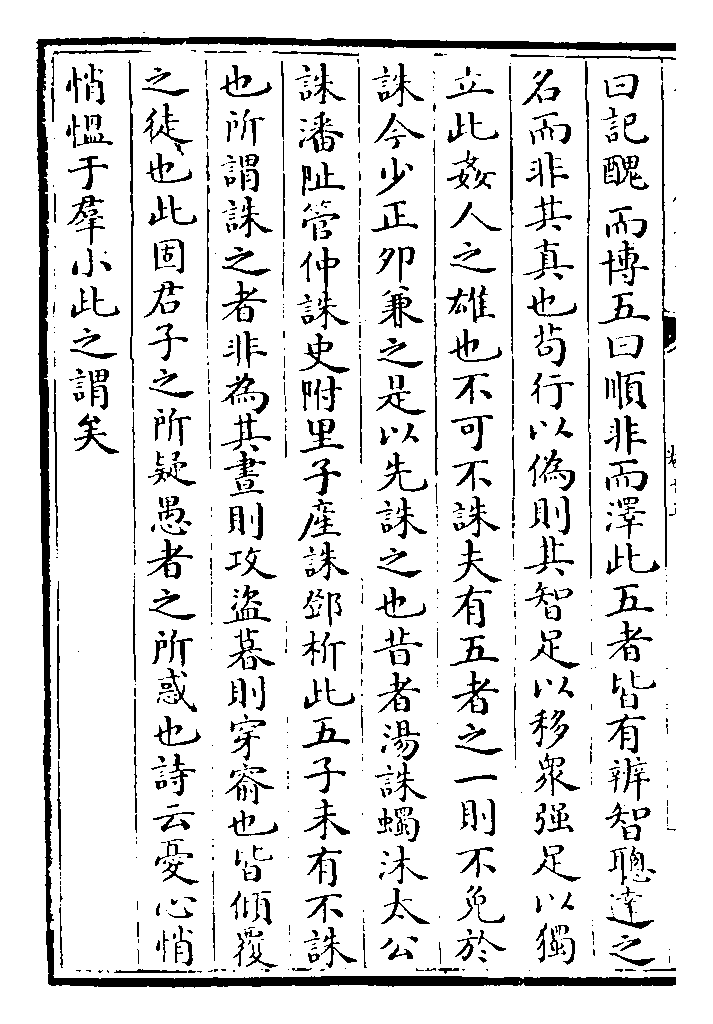 曰記醜而博五曰順非而澤此五者皆有辨智聰達之
名而非其真也茍行以偽則其智足以移衆强足以獨
立此姦人之雄也不可不誅夫有五者之一則不免於
誅今少正卯兼之是以先誅之也昔者湯誅蠋沐太公
誅潘阯管仲誅史附里子產誅鄧析此五子未有不誅
也所謂誅之者非為其晝則攻盜暮則穿窬也皆傾覆
之徒也此固君子之所疑愚者之所惑也詩云憂心悄
悄愠于羣小此之謂矣